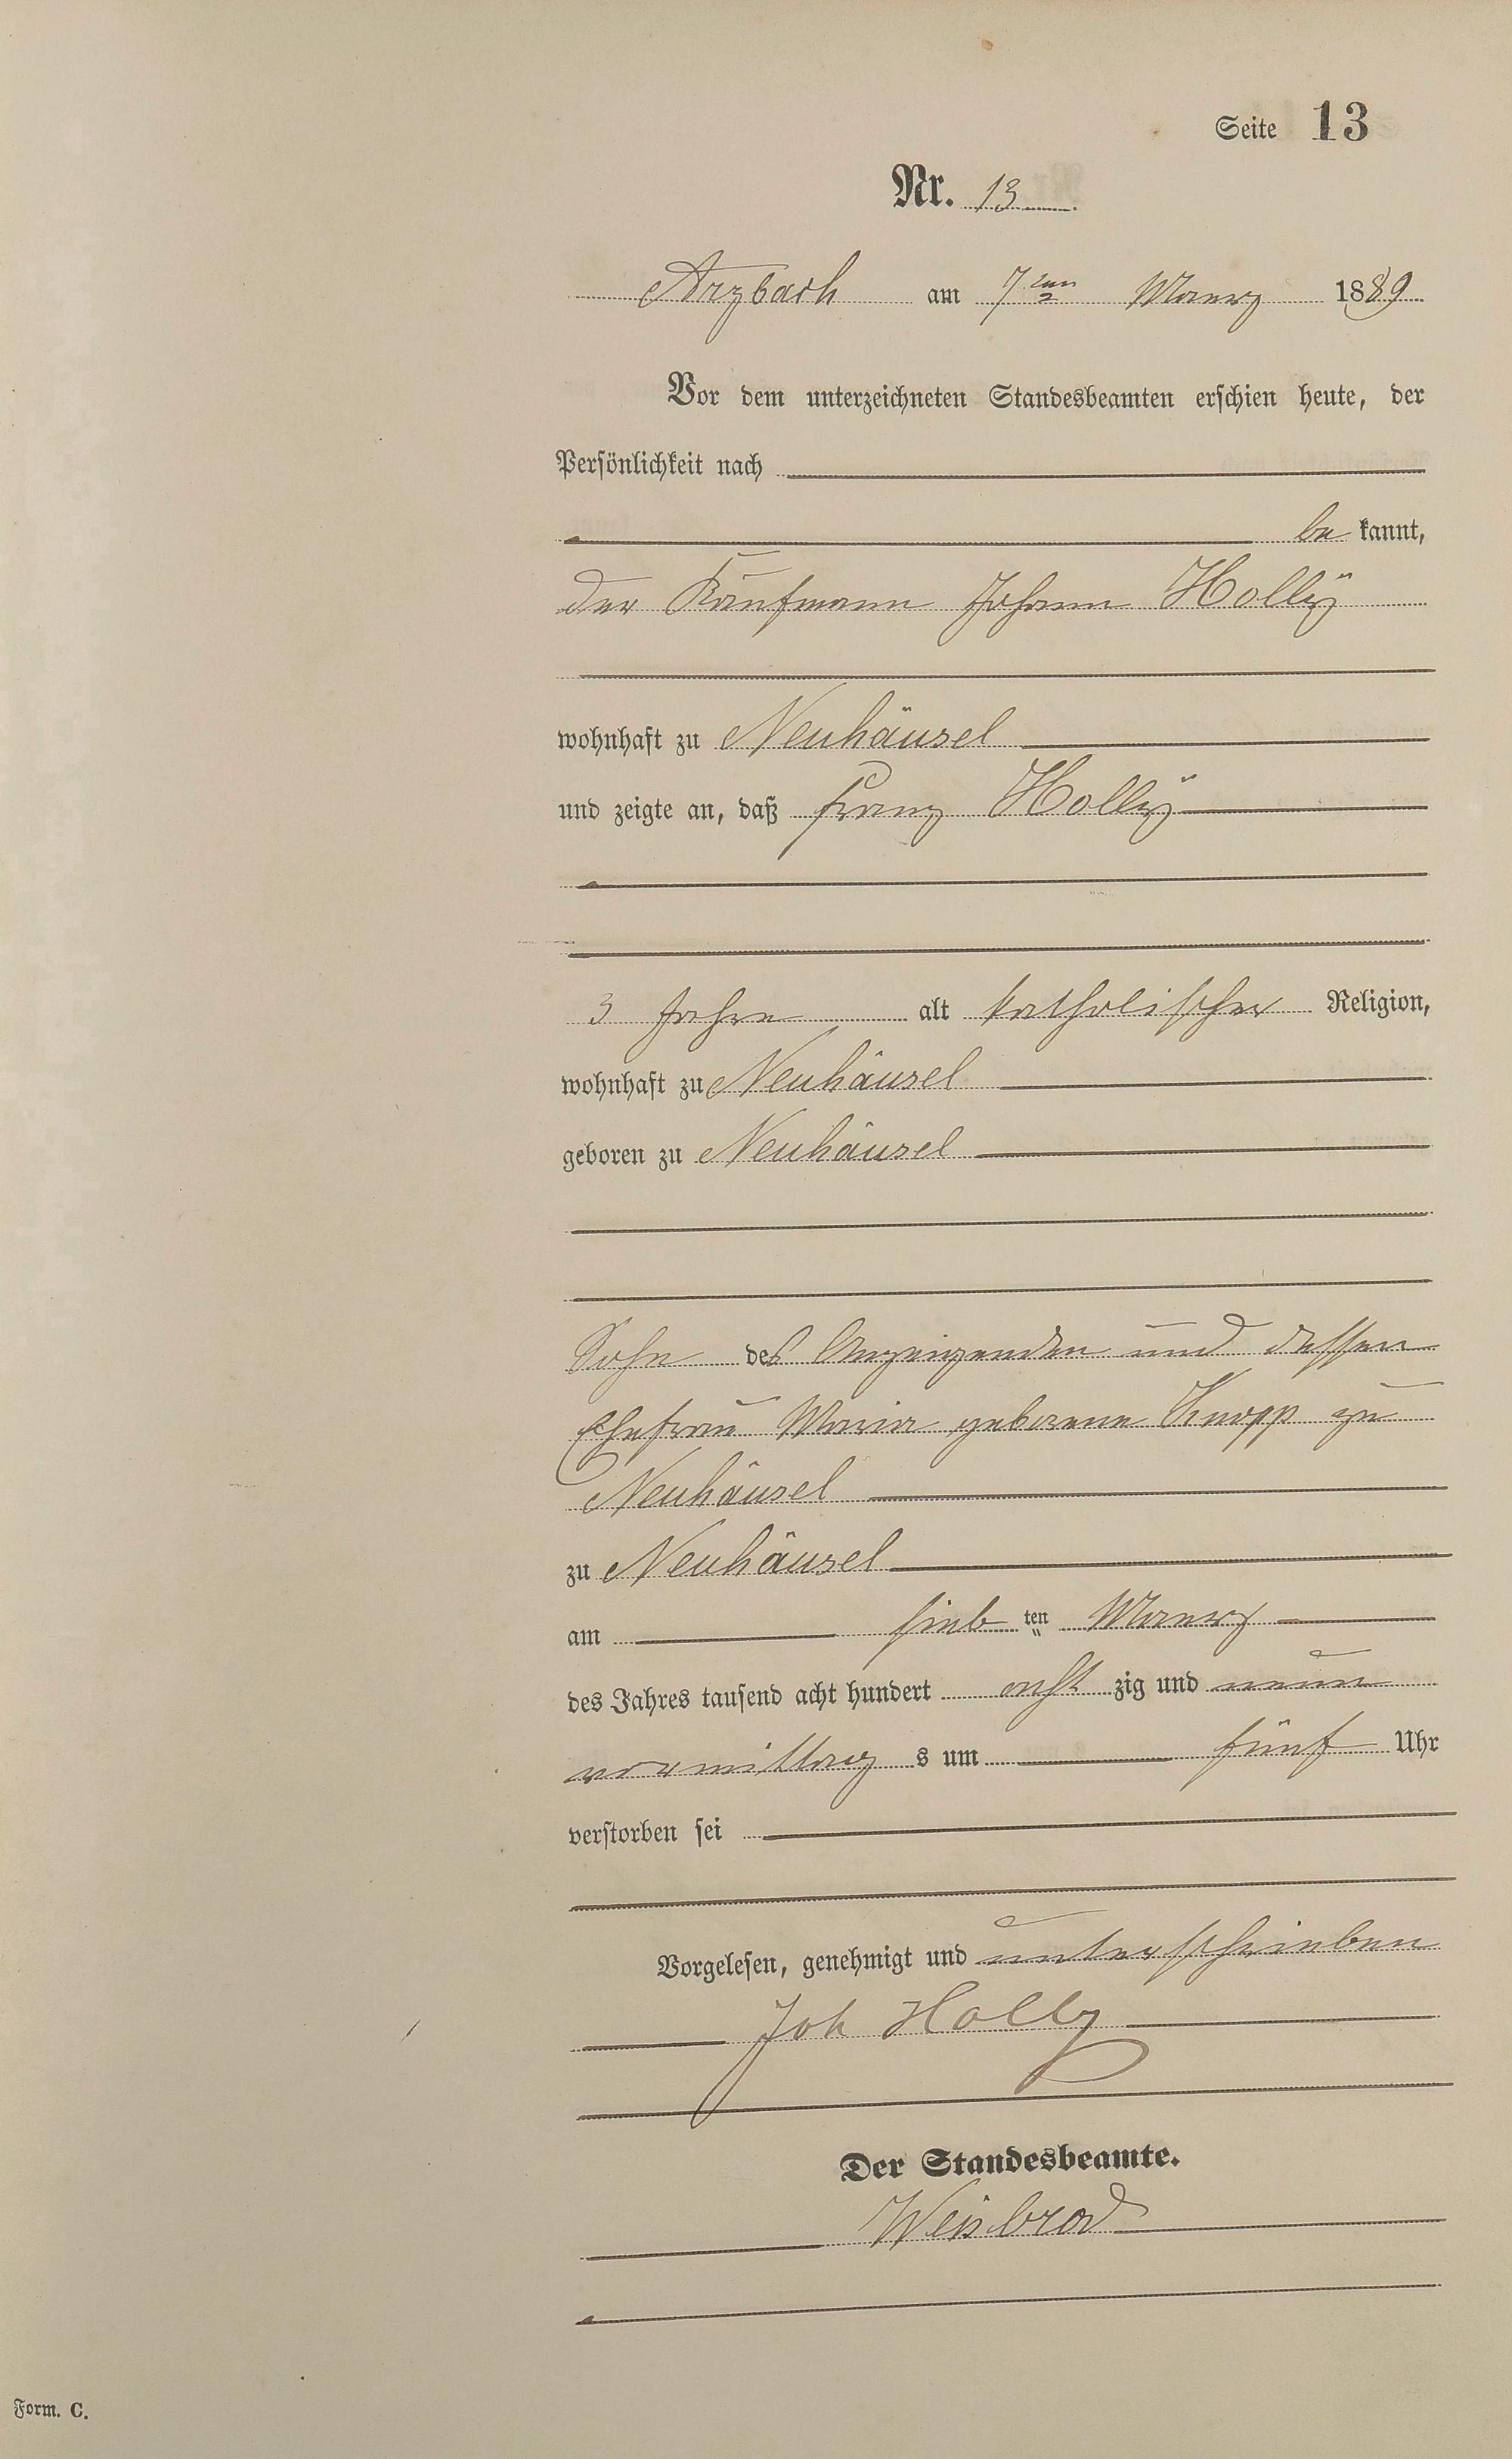 Seite 13
Nr. 13.
Arzbach am 7ten Maerz 1889
Vor dem unterzeichneten Standesbeamten erschien heute, der
Persönlichkeit nach
be kannt,
der Kaufmann Johann Hollÿ
wohnhaft zu Neuhäusel
und zeigte an, daß Franz Hollÿ
3 Jahre alt katholischer Religion,
wohnhaft zu Neuhäusel
geboren zu Neuhäusel
Sohn des Anzeigenden und dessen
Ehefrau Maria geborene Knopp zu
Neuhäusel
zu Neuhäusel
am sieb ten Maerz
des Jahres tausend acht hundert acht zig und neun
vormittag s um fünf Uhr
verstorben sei
Vorgelesen, genehmigt und unterschrieben
Joh Holly
Der Standesbeamte.
Weisbrod
Form. C.